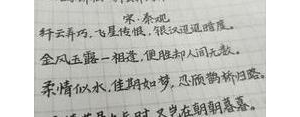 宋·秦观
纤云弄巧,飞星传恨,银汉迢迢暗度。
金风玉露一相逢,便胜却人间无数。
柔情似水,佳期如梦,忍顾鹊桥归路。
又岂在朝朝暮暮。